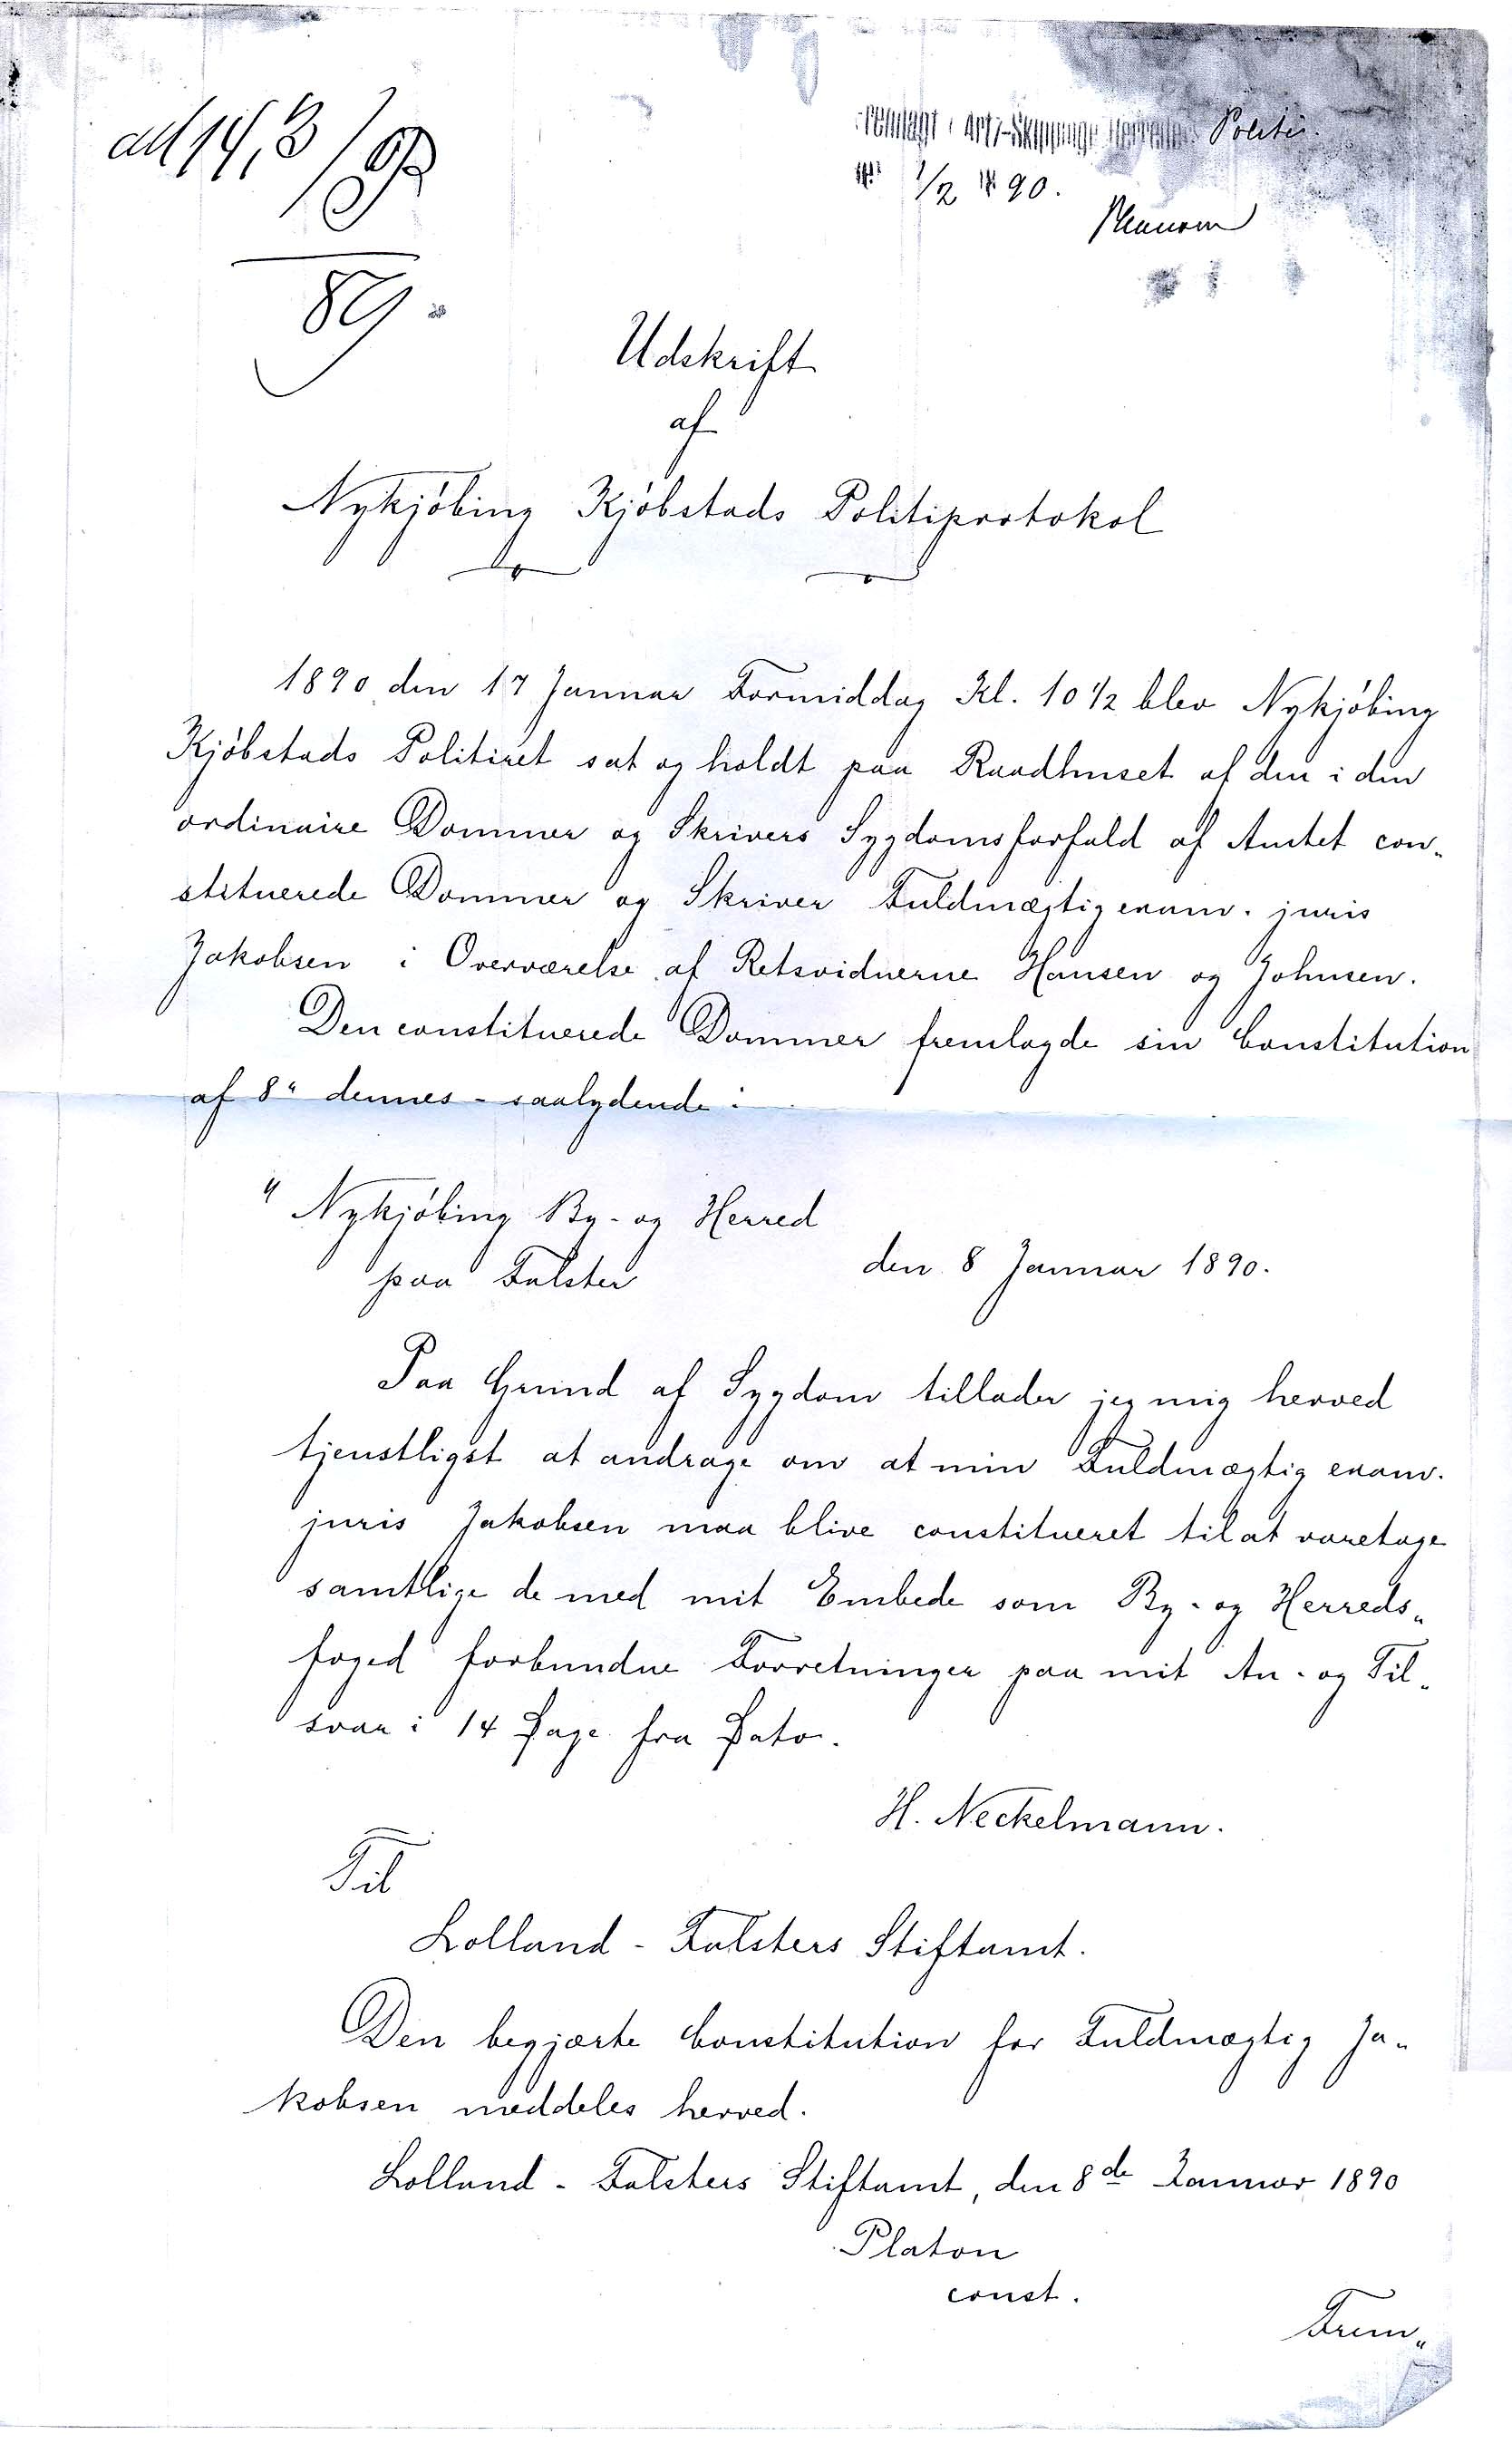 Politi
1/2 90.
89.
Udskrift
af
Nykjöbing Kjöbstads Politiprotokol
1890 den 17 Januar Formiddag Kl. 10 1/2 blev Nykjöbing
Kjöbstads Politiret sat og holdt paa Raadhuset af den i den
ordinaire Dommer og Skrivers Sygdomsforfald af Amtet con-
stituerede Dommer og Skriver Fuldmægtig exam. juris
Jakobsen i Overværelse af Retsvidnerne Hansen og Johnsen.
Den constituerede Dommer fremlagde sin Constitution
af 8" dennes - saalydende:
" Nykjöbing By- og Herred
paa Falster
den 8 Januar 1890.
Paa Grund af Sygdom tillader jeg mig herved
tjenstligst at andrage om at min Fuldmægtig exam.
juris Jakobsen maa blive constitueret til at varetage
samtlige de med mit Embede som By- og Herreds-
foged forbundne Forretninger paa mit An- og Til-
svar i 14 Dage fra Dato.
H. Neckelmann.
Til
Lolland - Falsters Stiftamt.
Den begjærte Constitution for Fuldmægtig Ja-
kobsen meddeles herved.
Lolland - Falsters Stiftamt, den 8de Januar 1890
Platon
const.
Frem-